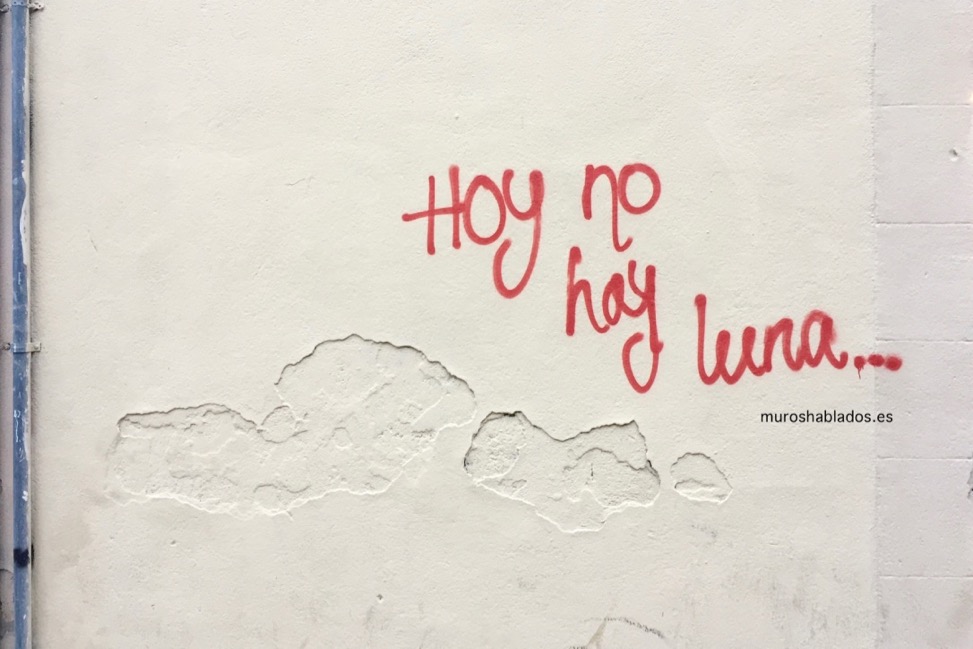 Hoy no
hay
luna...
muroshablados.es